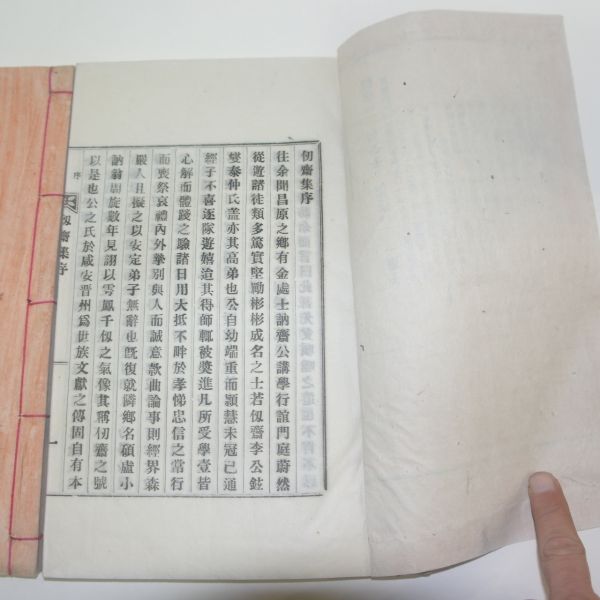 仞齋集序
往余聞昌原之鄉有金處士訥齋公講學行誼門庭蔚然
從遊諸徒類多篤實堅勵彬彬成名之士若仞齋李公鉉
燮泰仲氏蓋亦其高弟也公自幼端重而穎慧未冠已通
經子不喜逐隊遊嬉追其得師輒被奬進凡所受學壹皆
心解而體踐之驗諸日用大抵不畔於孝悌忠信之常行
而喪祭哀禮內外摯別與人而誠意款曲論事則經界森
嚴人且擬之以安定弟子無辭也旣復就隣鄉名碩盧小
訥翁周旋數年見詡以雪鳳千仞之氣像其稱仞齋之號
以是也公之氏於咸安晋州爲世族文獻之傳固自有本
序
仞齋集序
一